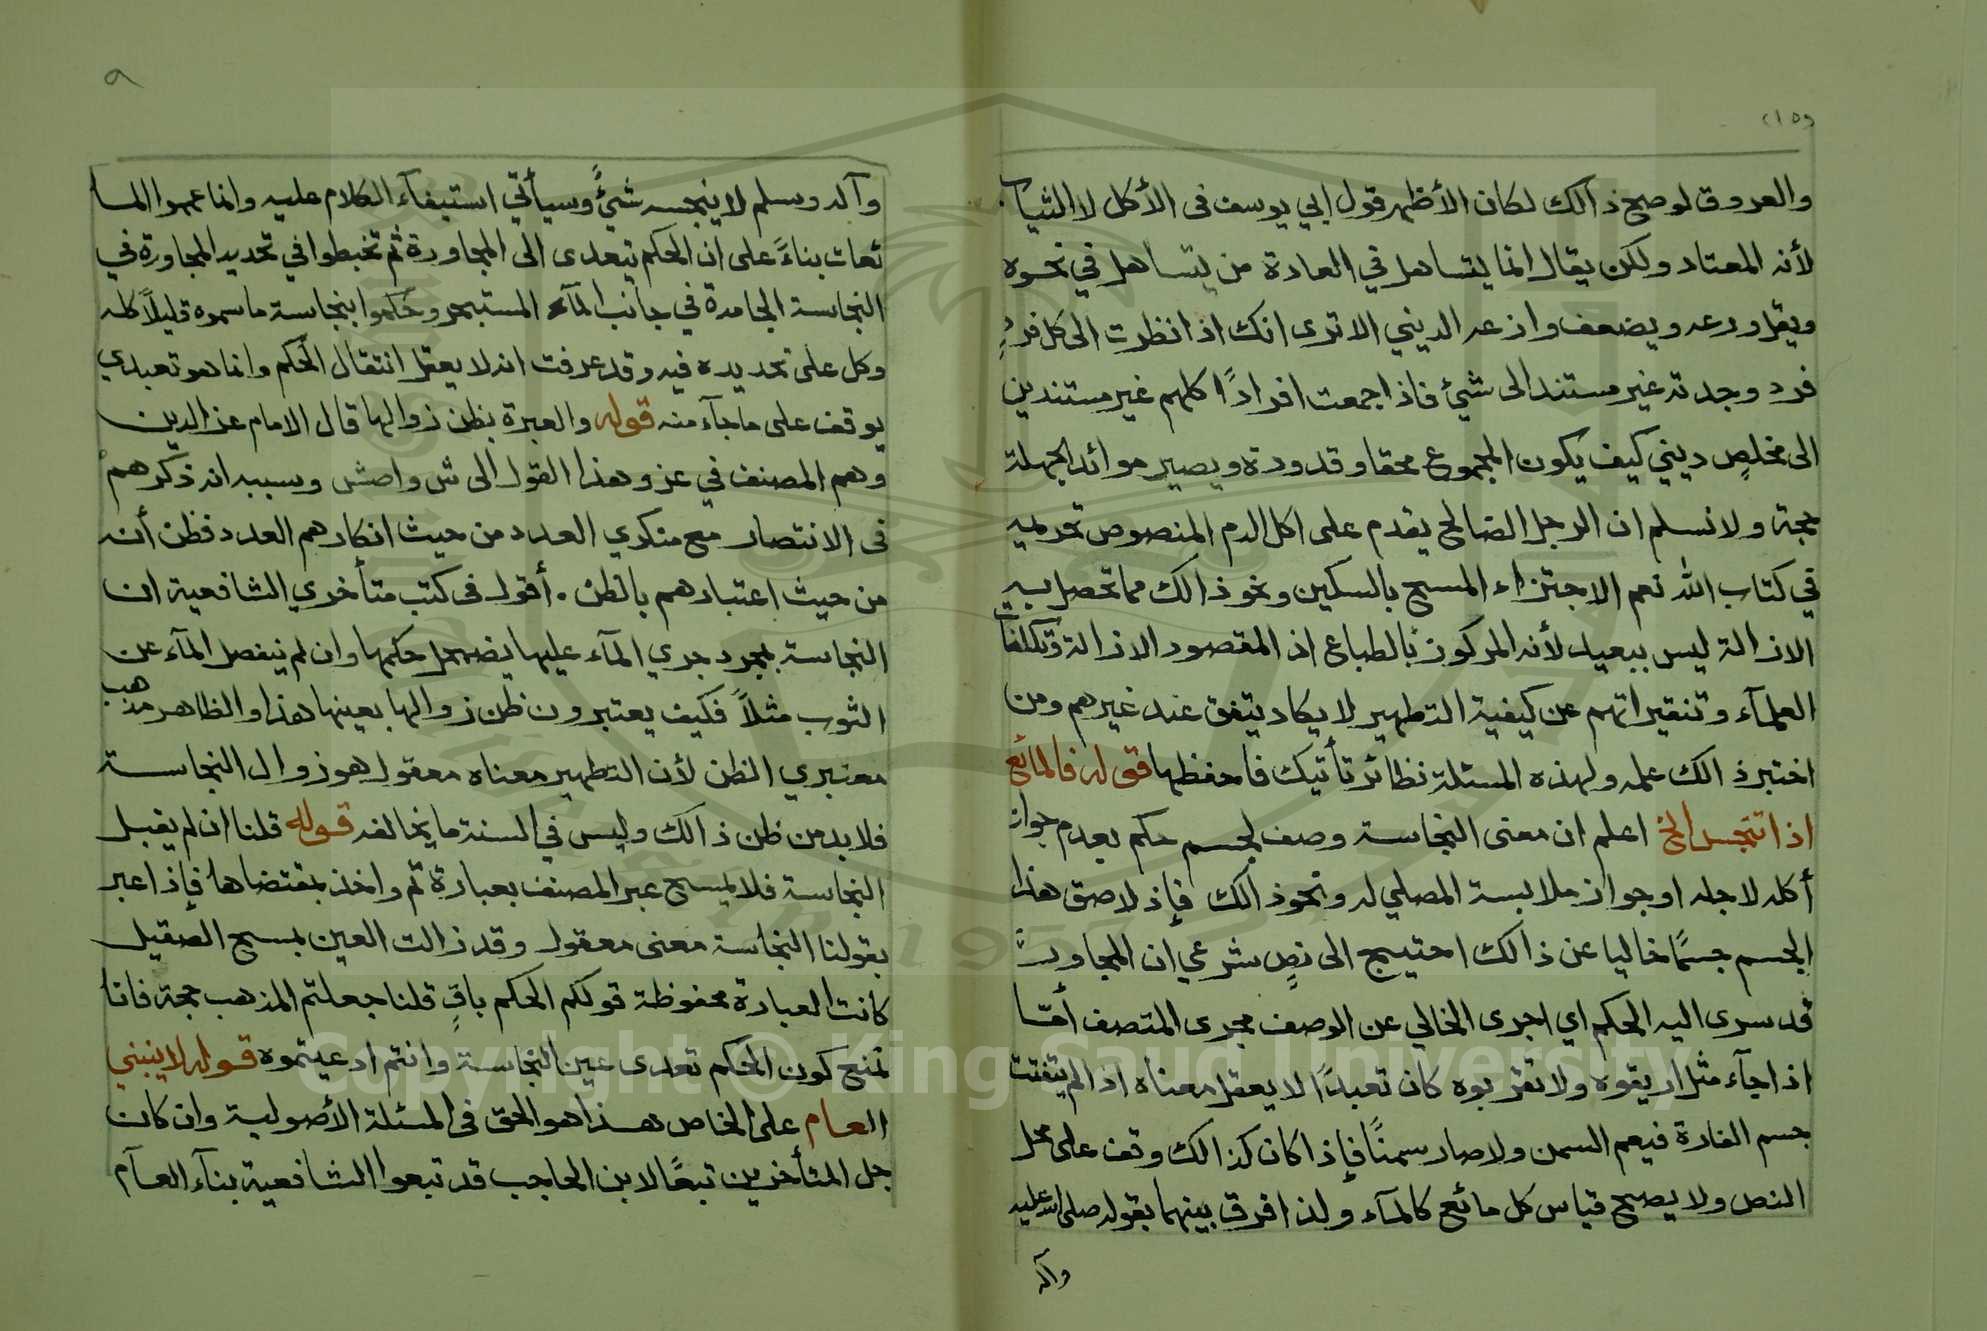 (١٥)
والعروق لو صح ذالك لكان الأظهر قول ابي يوسف فى الأكل لا الثياب
لأنه المعتاد ولكن يقال انما يتساهل في العادة من يتساهل في نحوه
ويقل ورعه ويضعف وازعه الديني الا ترى انك اذا نظرت الى كل فردٍ
فردٍ وجدته غير مستند الى شيئ فاذا جمعت افرادًا كلهم غير مستندين
الى مخلصٍ ديني كيف يكون المجموع محقا وقدوة ويصير موائد الجهلة
حجة ولا نسلم ان الرجل الصالح يقدم على اكل الدم المنصوص تحريمه
في كتاب الله نعم الاجتزاء المسح بالسكين ونحو ذالك مما تحصل به
الازالة ليس ببعيد لأنه المركوز بالطباع اذ المقصود الازالة وتكلفات
العلمآء وتنقيراتهم عن كيفية التطهير لا يكاد يتفق عند غيرهم ومن
اختبر ذالك علمه ولهذه المسئلة نظائر تأتيك فاحفظها قوله فالمائع
اذا تنجس الخ اعلم ان معنى النجاسة وصف لجسم حكم بعدم جواز
أكله لاجله او جواز ملابسة المصلي له ونحو ذالك فإذ لاصق هذا
الجسم جسمًا خاليا عن ذالك احتيج الى نصٍ شرعي ان المجاور
قد سرى اليه الحكم اي اجرى الخالي عن الوصف مجرى المتصف أمّا
اذا جآء مثل اريقوه ولا تقربوه كان تعبدًا لا يعقل معناه اذ لم يتفتت
جسم الفارة فيعم السمن ولا صار سمنًا فإذا كان كذالك وقف على محل
النص ولا يصح قياس كل مائع كالمآء ولذا فرق بينهما بقوله صلى الله عليه
وآله
٩
وآله وسلم لا ينجسه شيئٌ وسيأتي استيفآء الكلام عليه وانما عمموا الما
ئعات بناءً على ان الحكم يتعدى الى المجاورة ثم تخبطوا في تحديد المجاورة في
النجاسة الجامدة في جانب المآء المستبحر وحكموا بنجاسة ما سموه قليلاً كله
وكل على تحديده فيه وقد عرفت انه لا يعقل انتقال الحكم وانما هو تعبدي
يوقف على ما جآء منه قوله والعبرة بظن زوالها قال الامام عز الدين
وهم المصنف في عزو هذا القول الى ش واصش وسببه انه ذكرهم
فى الانتصار مع منكري العدد من حيث انكارهم العدد فظن أنه
من حيث اعتبارهم بالظن . أقول فى كتب متأخري الشافعية ان
النجاسة بمجرد جري المآء عليها يضمحل حكمها وان لم ينفصل المآء عن
الثوب مثلاً فكيف يعتبرون ظن زوالها بعينها هذا والظاهر مذهب
معتبري الظن لأن التطهير معناه معقول هو زوال النجاسة
فلا بد من ظن ذالك وليس في السنة ما يخالفه قوله قلنا ان لم يقبل
النجاسة فلا يمسح عبر المصنف بعبارة ثم واخذ بمقتضاها فإذا عبر
بقولنا النجاسة معنى معقول وقد زالت العين بمسح الصقيل
كانت العبارة محفوظة قولكم الحكم باقٍ قلنا جعلتم المذهب حجة فانا
نمنع كون الحكم تعدى عين النجاسة وانتم ادعيتموه قوله لا ينبني
العام على الخاص هذا هو الحق فى المسئلة الأصولية وان كان
جل المتأخرين تبعًا لابن الحاجب قد تبعوا الشافعية بنآء العآم
Copyright © King Saud University